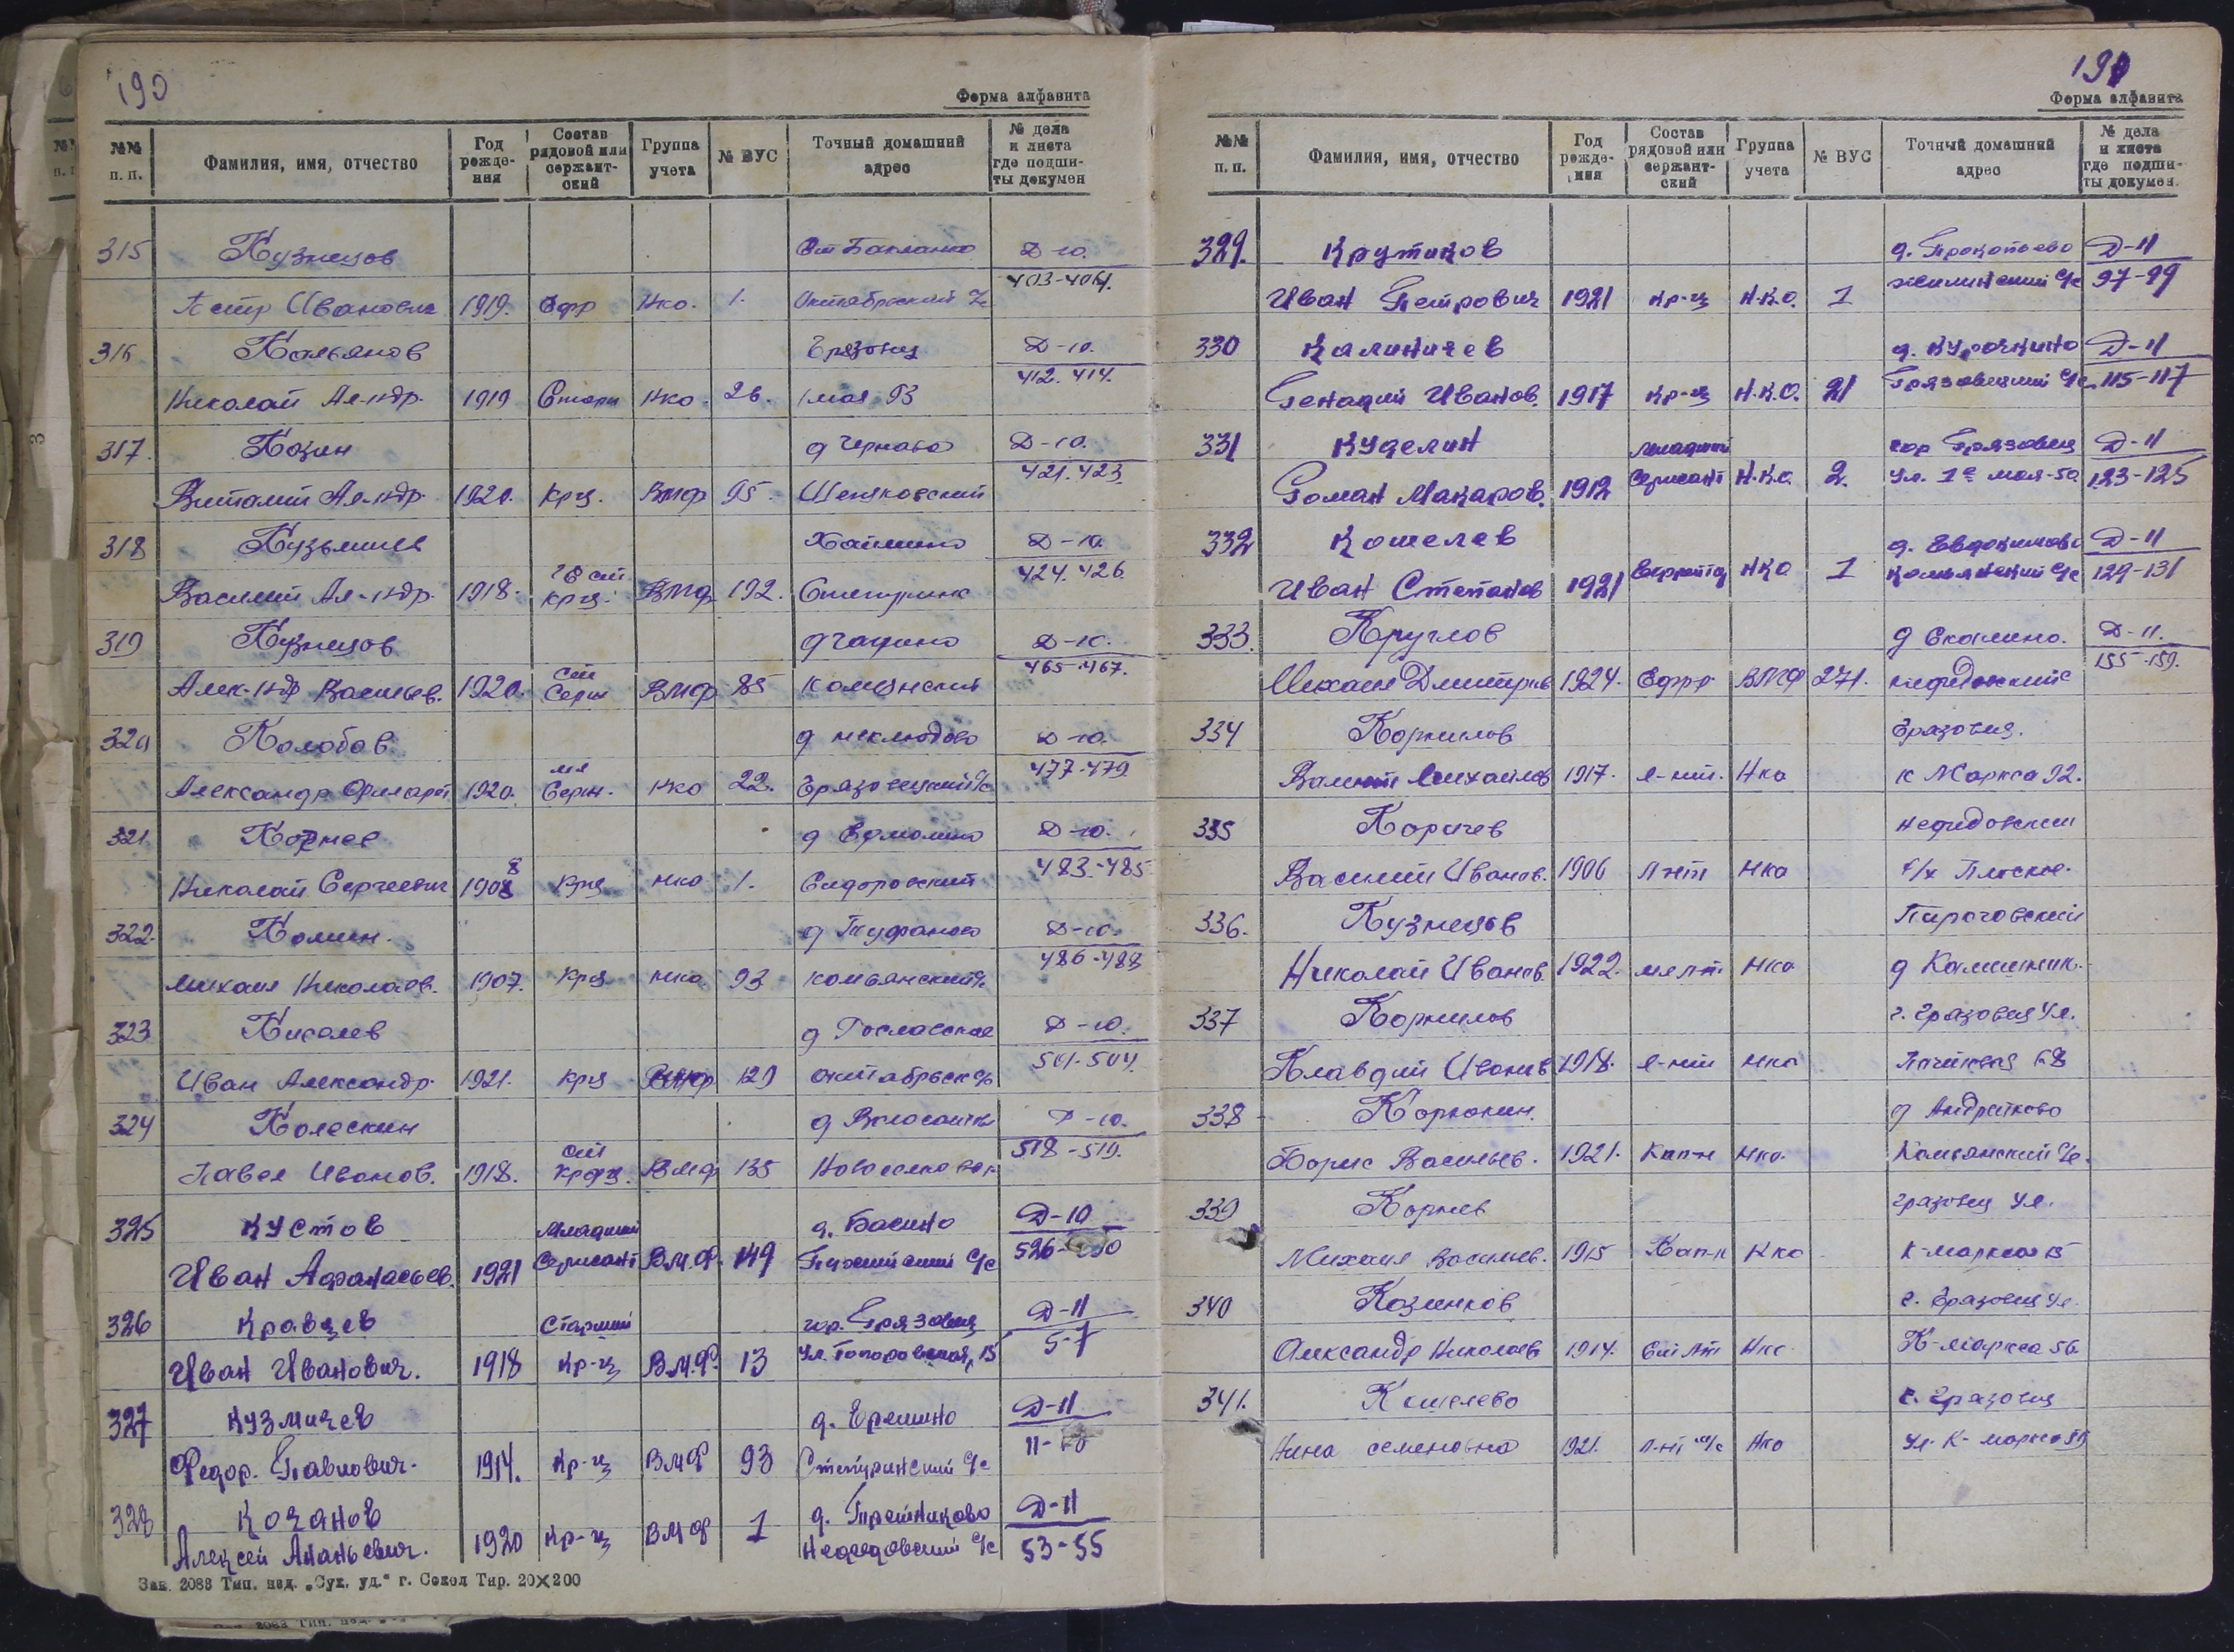 190
Форма алфавита
№№ п. п. Фамилия, имя, отчество Год рожде-ния Состав рядовой или сержант-ский Группа учета № ВУС Точный домашний адрес № дела и листа где подши-ты докумен
315 Кузнецов ст Бакланка Д-10.
Петр Иванович 1919. Ефр Нко. 1. Октябрьский с/с 403-404.
316 Кальянов Грязовец Д-10.
Николай Ал-ндр. 1919 Старш Нко. 26. 1 мая 93 412. 414.
317. Козин д Черново Д-10.
Виталий Ал-ндр. 1920. Крц. ВМФ 95. 421. 423.
318 Кузьмичев Д-10.
Василий Ал-ндр. 1918. ст крц. ВМФ 192. 424. 426.
319 Кузнецов Д-10.
Алек-ндр Васильев. 1920. ст Серж ВМФ 85 465-467.
320 Колобов д неклюдово Д-10.
Александр Филарет 1920. мл Серж. Нко 22. Грязовецкий с/с 477-479
321. Корнев д Ермолино Д-10.
Николай Сергеевич 1908 8 Крц Нко 1. Сидоровский 483-485
322. Комин. д Труфаново Д-10.
Михаил Николаев. 1907. Крц Нко. 93 Комьянский с/с 486-488
323 Киселев Д-10.
Иван Александр. 1921. Крц ВМФ 129 октябрьск с/с 501-504.
324 Колескин Д-10.
Павел Иванов. 1918. ст Крфц. ВМФ 135 518-519.
325 Кустов Младший д. Басино Д-10
Иван Афанасьев. 1921 Сержант В.М.Ф. 149 с/с 526-
326 Кравцев Старший гор. Грязовец Д-11
Иван Иванович. 1918 Кр-ц В.М.Ф. 13 ул. 15 5-7
327 Кузмичев д. Еремино Д-11
Федор. Павлович. 1914. Кр-ц ВМФ 93 Степуринский с/с 11-
328 Кочанов Д-11
Алексей Ананьевич. 1920 Кр-ц ВМФ 1 Нефедовский с/с 53-55
Зак. 2088 Тип. изд. „Сух. уд." г. Сокол Тир. 20×200
191
Форма алфавита
№№ п. п. Фамилия, имя, отчество Год рожде-ния Состав рядовой или сержант-ский Группа учета № ВУС Точный домашний адрес № дела и листа где подши-ты докумен.
329. Крутиков д. Прокопьево Д-11
Иван Петрович 1921 Кр-ц Н.К.О. 1 с/с 97-99
330 Калиничев д. Курочкино Д-11
Генадий Иванов. 1917 Кр-ц Н.К.О. 21 Грязовецкий с/с 115-117
331 Куделин Младший гор Грязовец Д-11
Роман Макаров. 1912 Сержант Н.К.О. 2. ул. 1е мая-50 123-125
332 Кошелев д. Евдокимово Д-11
Иван Степанов 1921 НКО 1 Комьянский с/с 129-131
333. Круглов д Скалино. Д-11.
Михаил Дмитрив 1924. Ефрр ВМФ 271. 155-159.
334 Корнилов Грязовец.
Михайлов 1917. л-нт. Нко К Маркса 92.
335 Коричев Нефедовский
Василий Иванов. 1906 Л-нт Нко с/х Плоское.
336. Кузнецов Пироговский
Николай Иванов. 1922. мл л-т Нко д
337 Корнилов г. Грязовец ул.
Клавдий Иванов 1918. л-нт Нко 68
338 Корюкин. д Андрейково
Борис Васильев. 1921. Кап-н Нко. Комьянский с/с.
339 Корнев Грязовец ул.
Михаил Васильев. 1915 Кап-н Нко К-маркса 15
340 Козинков г. Грязовец ул.
Александр Николаев 1914. Ст Лт Нко К-маркса 56.
341. Кошелева г. Грязовец
Нина Семеновна 1921. Л-нт м/с Нко ул. К-маркса